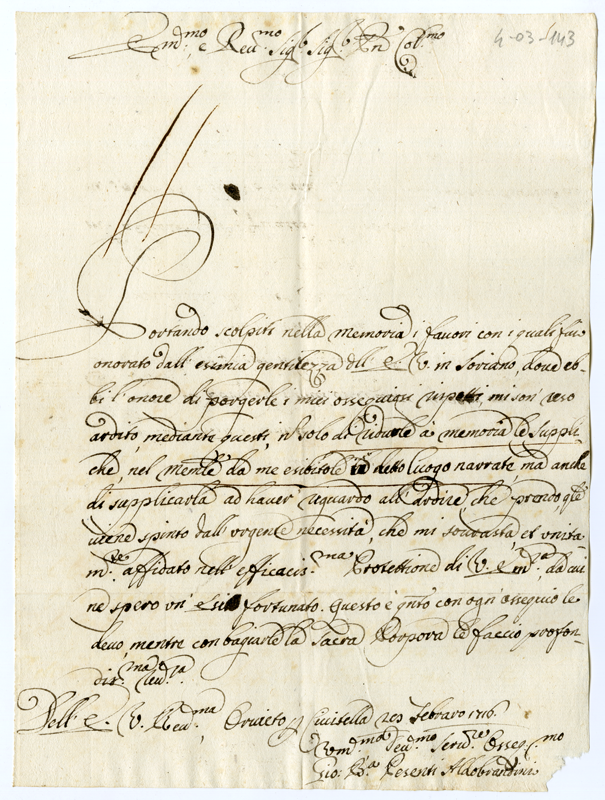 4-03-143
Em.mo e Rev.mo Sig.r Sig.r Pn Col.mo
Portando scolpiti nella memoria i favori con i quali fui
onorato dall'esimia gentilezza dell'E. V. in Soriano, dove eb-
bi l'onore di porgerle i miei ossequiosi rispetti, mi son reso
ardito, mediante questi, nō solo di ridurle à memoria le suppli-
che, nel mem.le da me esibitole in detto luogo narrate, mà anche
di supplicarla ad haver riguardo all'ardire, che prendo, q.le
viene spinto dall'urgente necessità, che mi sourasta, et unita-
m.te affidato nell'efficacis.ma Protettione di V. Em.a, da cui
ne spero un' esito fortunato. Questo è q.nto con ogn'ossequio le
devo, mentre con bagiarle la Sacra Porpora le faccio profon-
dis.ma riv.a
Dell'E. V. Rev.ma Orvieto p Civitella 20 Febraro 1716.
Um.mo Dev.mo Serv.re Osseq.mo
Gio: B.a Pesenti Aldobrandini